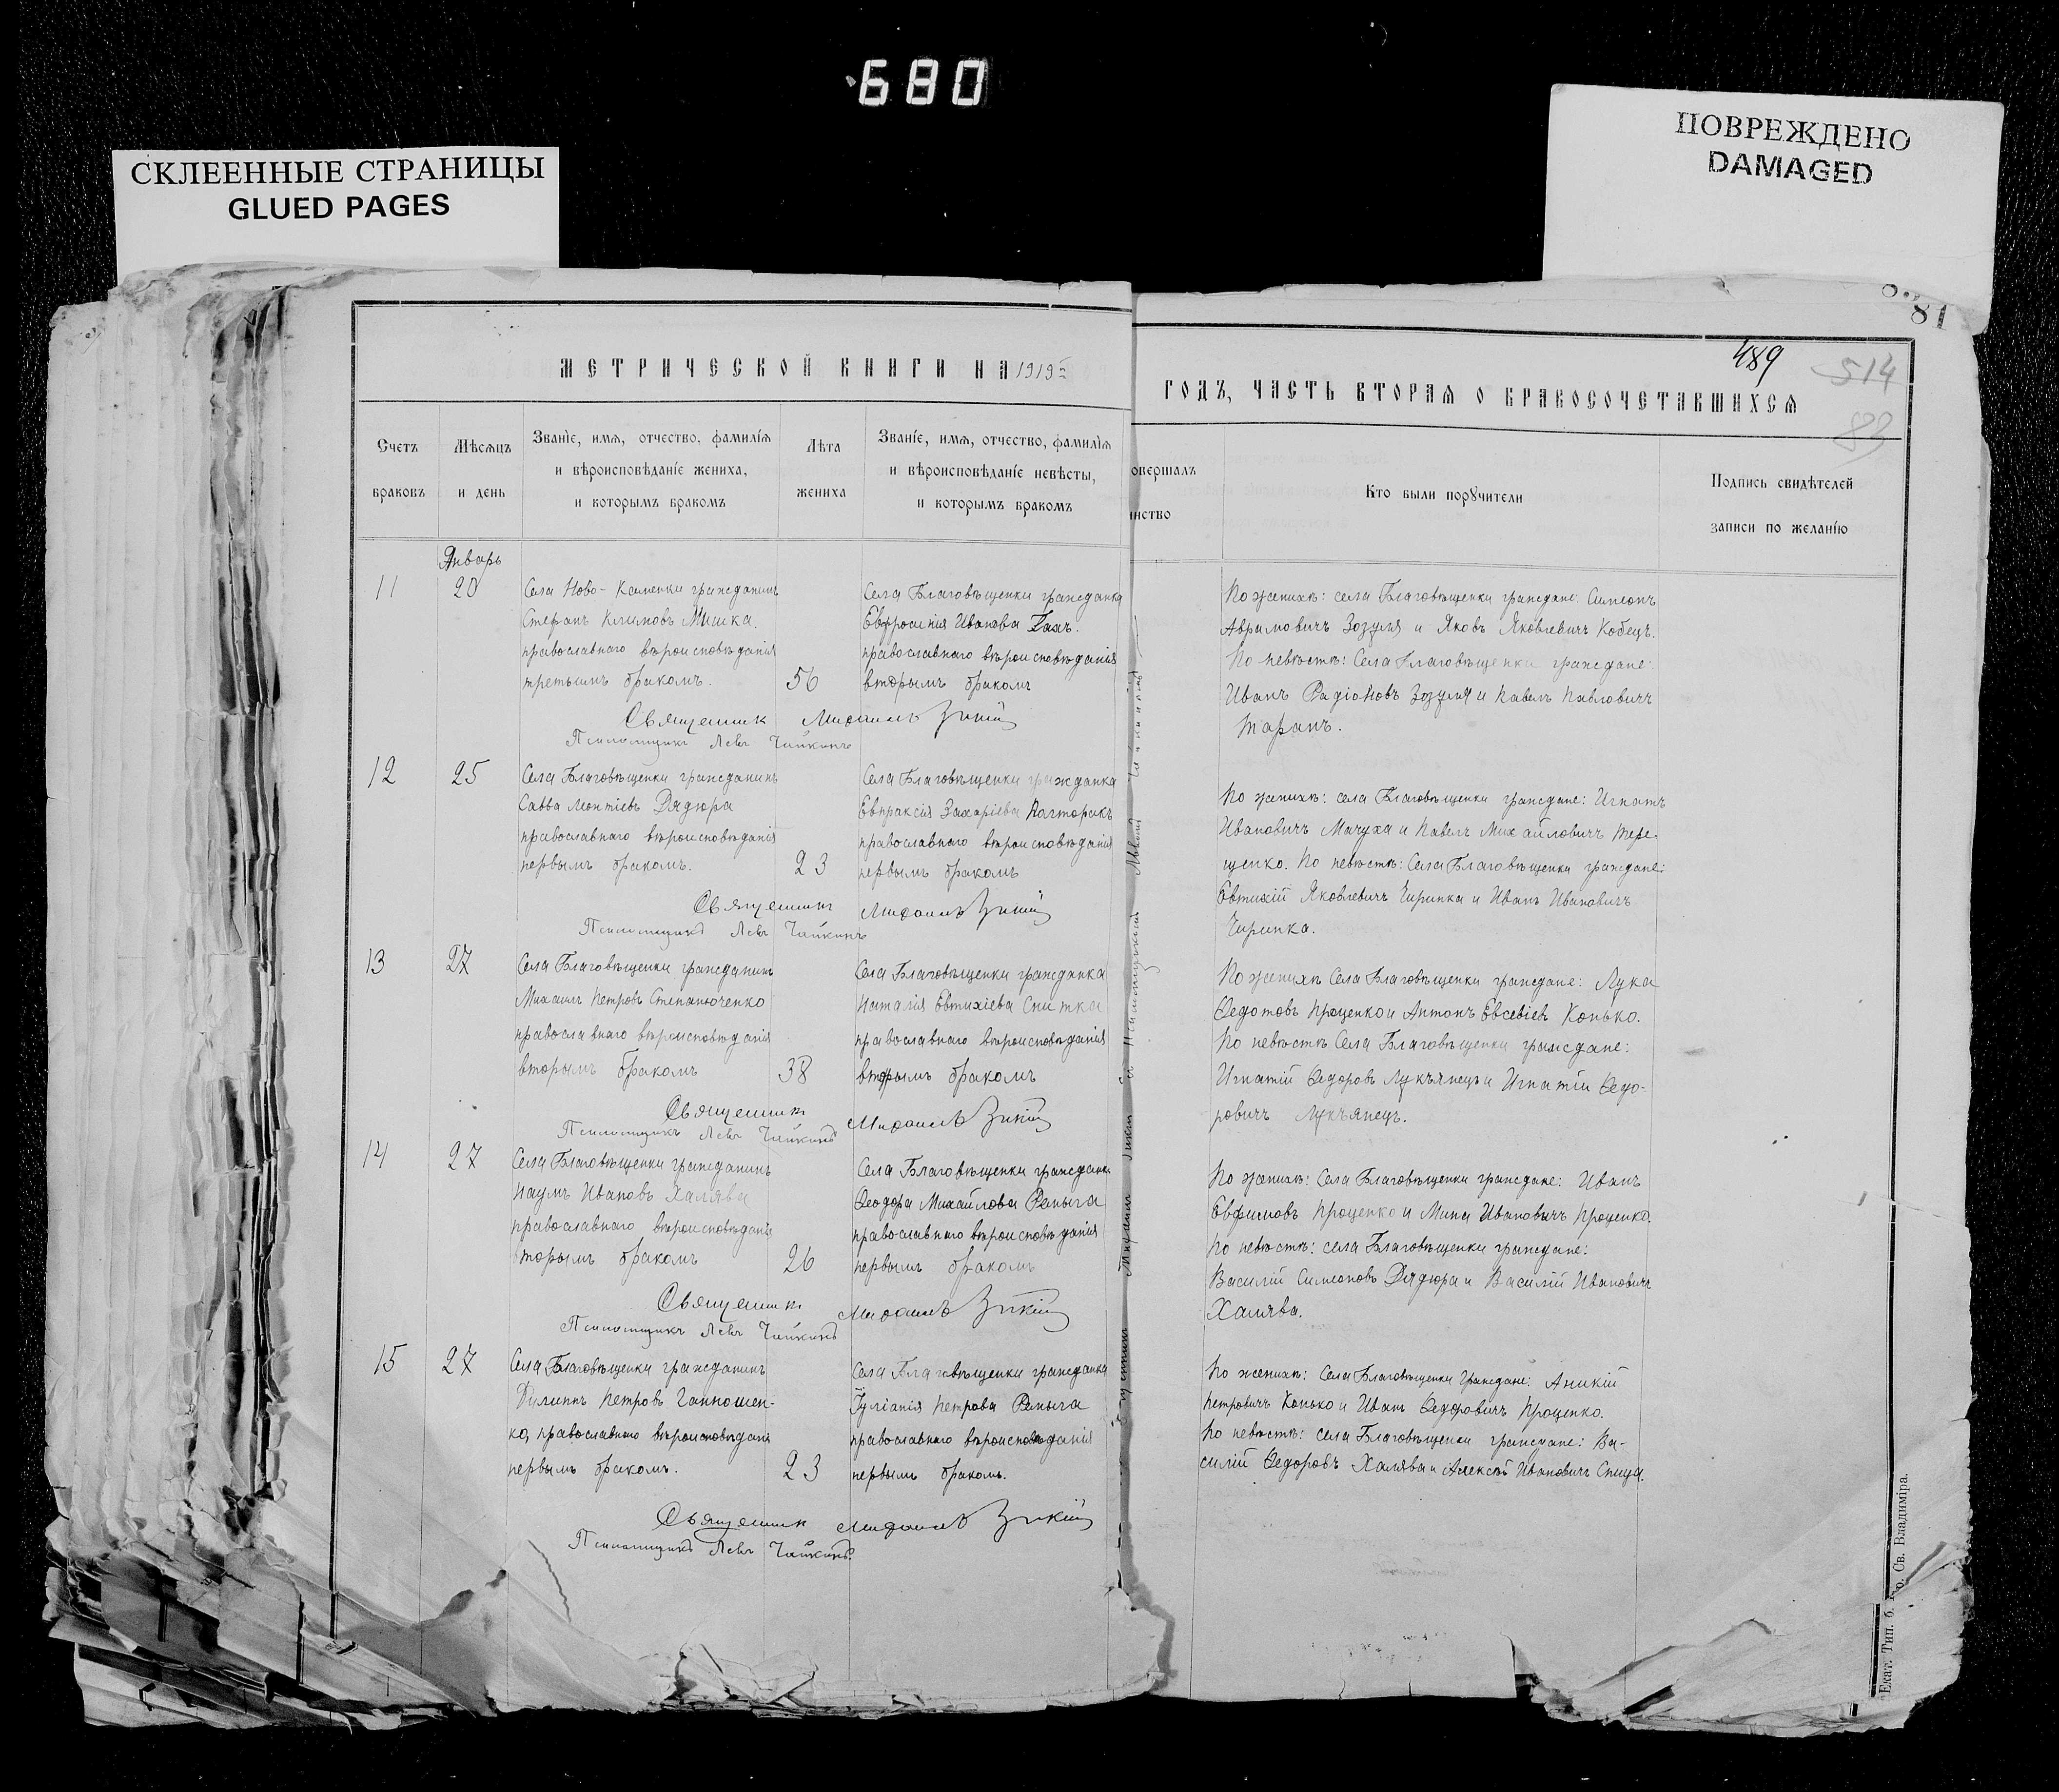 680
СКЛЕЕННЫЕ СТРАНИЦЫ
GLUED PAGES
ПОВРЕЖДЕНО
DAMAGED
81
МЕТРИЧЕСКОЙ КНИГИ НА 1919
Счетъ
браковъ
Мѣсяцъ
и день
Званіе, имя, отчество, фамилія
и вѣроисповѣданіе жениха,
и которымъ бракомъ
Лѣта
жениха
Званіе, имя, отчество, фамилія
и вѣроисповѣданіе невѣсты,
и которымъ бракомъ
Январь
11
20
Села Ново-Каменки гражданинъ
Стефанъ Климовъ Мишка.
православнаго вѣроисповѣданія
третьимъ бракомъ.
56
Села Благовѣщенки гражданка
Евфросинія Иванова
православнаго вѣроисповѣданія
вторымъ бракомъ
Священник Михаилъ Зикій
Псаломщикъ Левъ Чайкинъ
12
25
Села Благовѣщенки гражданинъ
Савва Леонтіевъ Дядюра
православнаго вѣроисповѣданія
первымъ бракомъ.
23
Села Благовѣщенки гражданка
Евпраксія Захаріева Полторакъ
православнаго вѣроисповѣданія
первымъ бракомъ
Священник Михаилъ Зикій
Псаломщикъ Левъ Чайкинъ
13
27
Села Благовѣщенки гражданинъ
Михаилъ Петровъ Степанюченко
православнаго вѣроисповѣданія
вторымъ бракомъ
38
Села Благовѣщенки гражданка
Наталія Евтихіева Снитка
православнаго вѣроисповѣданія
вторымъ бракомъ
Священник Михаилъ Зикій
Псаломщикъ Левъ Чайкинъ
14
27
Села Благовѣщенки гражданинъ
Наумъ Ивановъ Халява
православнаго вѣроисповѣданія
вторымъ бракомъ
26
Села Благовѣщенки гражданка
Феодора Михайлова Репыга
православнаго вѣроисповѣданія
первымъ бракомъ
Священник Михаилъ Зикій
Псаломщикъ Левъ Чайкинъ
15
27
Села Благовѣщенки гражданинъ
Филиппъ Петровъ Гапношен-
ко, православнаго вѣроисповѣданія
первымъ бракомъ.
23
Села Благовѣщенки гражданка
Іуліанія Петрова Репыга
православнаго вѣроисповѣданія
первымъ бракомъ.
Священник Михаилъ Зикій
Псаломщикъ Левъ Чайкинъ
489
514
83
ГОДЪ, ЧАСТЬ ВТОРАЯ О БРАКОСОЧЕТАВШИХСЯ
овершалъ
инство
Кто были поручители
Подпись свидѣтелей
записи по желанію
По женихѣ: села Благовѣщенки граждане: Симеонъ
Аврамовичъ Зозуля и Яковъ Яковлевичъ Кобецъ.
По невѣстѣ: Села Благовѣщенки граждане:
Иванъ Радіоновъ Зозуля и Павелъ Павловичъ
Таранъ.
По женихѣ: села Благовѣщенки граждане: Игнатъ
Ивановичъ Мачуха и Павелъ Михайловичъ Тере-
щенко. По невѣстѣ: Села Благовѣщенки граждане:
Евтихій Яковлевичъ Чиринка и Иванъ Ивановичъ
Чиринка.
По женихѣ Села Благовѣщенки граждане: Лука
Федотовъ Проценко и Антонъ Евсевіев Конько.
По невѣстѣ Села Благовѣщенки граждане:
Игнатій Федоровъ Лукъянецъ и Игнатій Федо-
ровичъ Лукъянецъ.
По женихѣ: Села Благовѣщенки граждане: Иванъ
Евфимовъ Проценко и Мина Ивановичъ Проценко.
По невѣстѣ: села Благовѣщенки граждане:
Василій Симеоновъ Дядюра и Василій Ивановичъ
Халява.
По женихѣ: Села Благовѣщенки Граждане: Аникій
Петровичъ Конько и Иванъ Федоровичъ Проценко.
По невѣстѣ: села Благовѣщенки граждане: Ва-
силій Федоровъ Халява и Алексѣй Ивановичъ Спица.
Екат. Тип. б. Бр. Св. Владиміра.